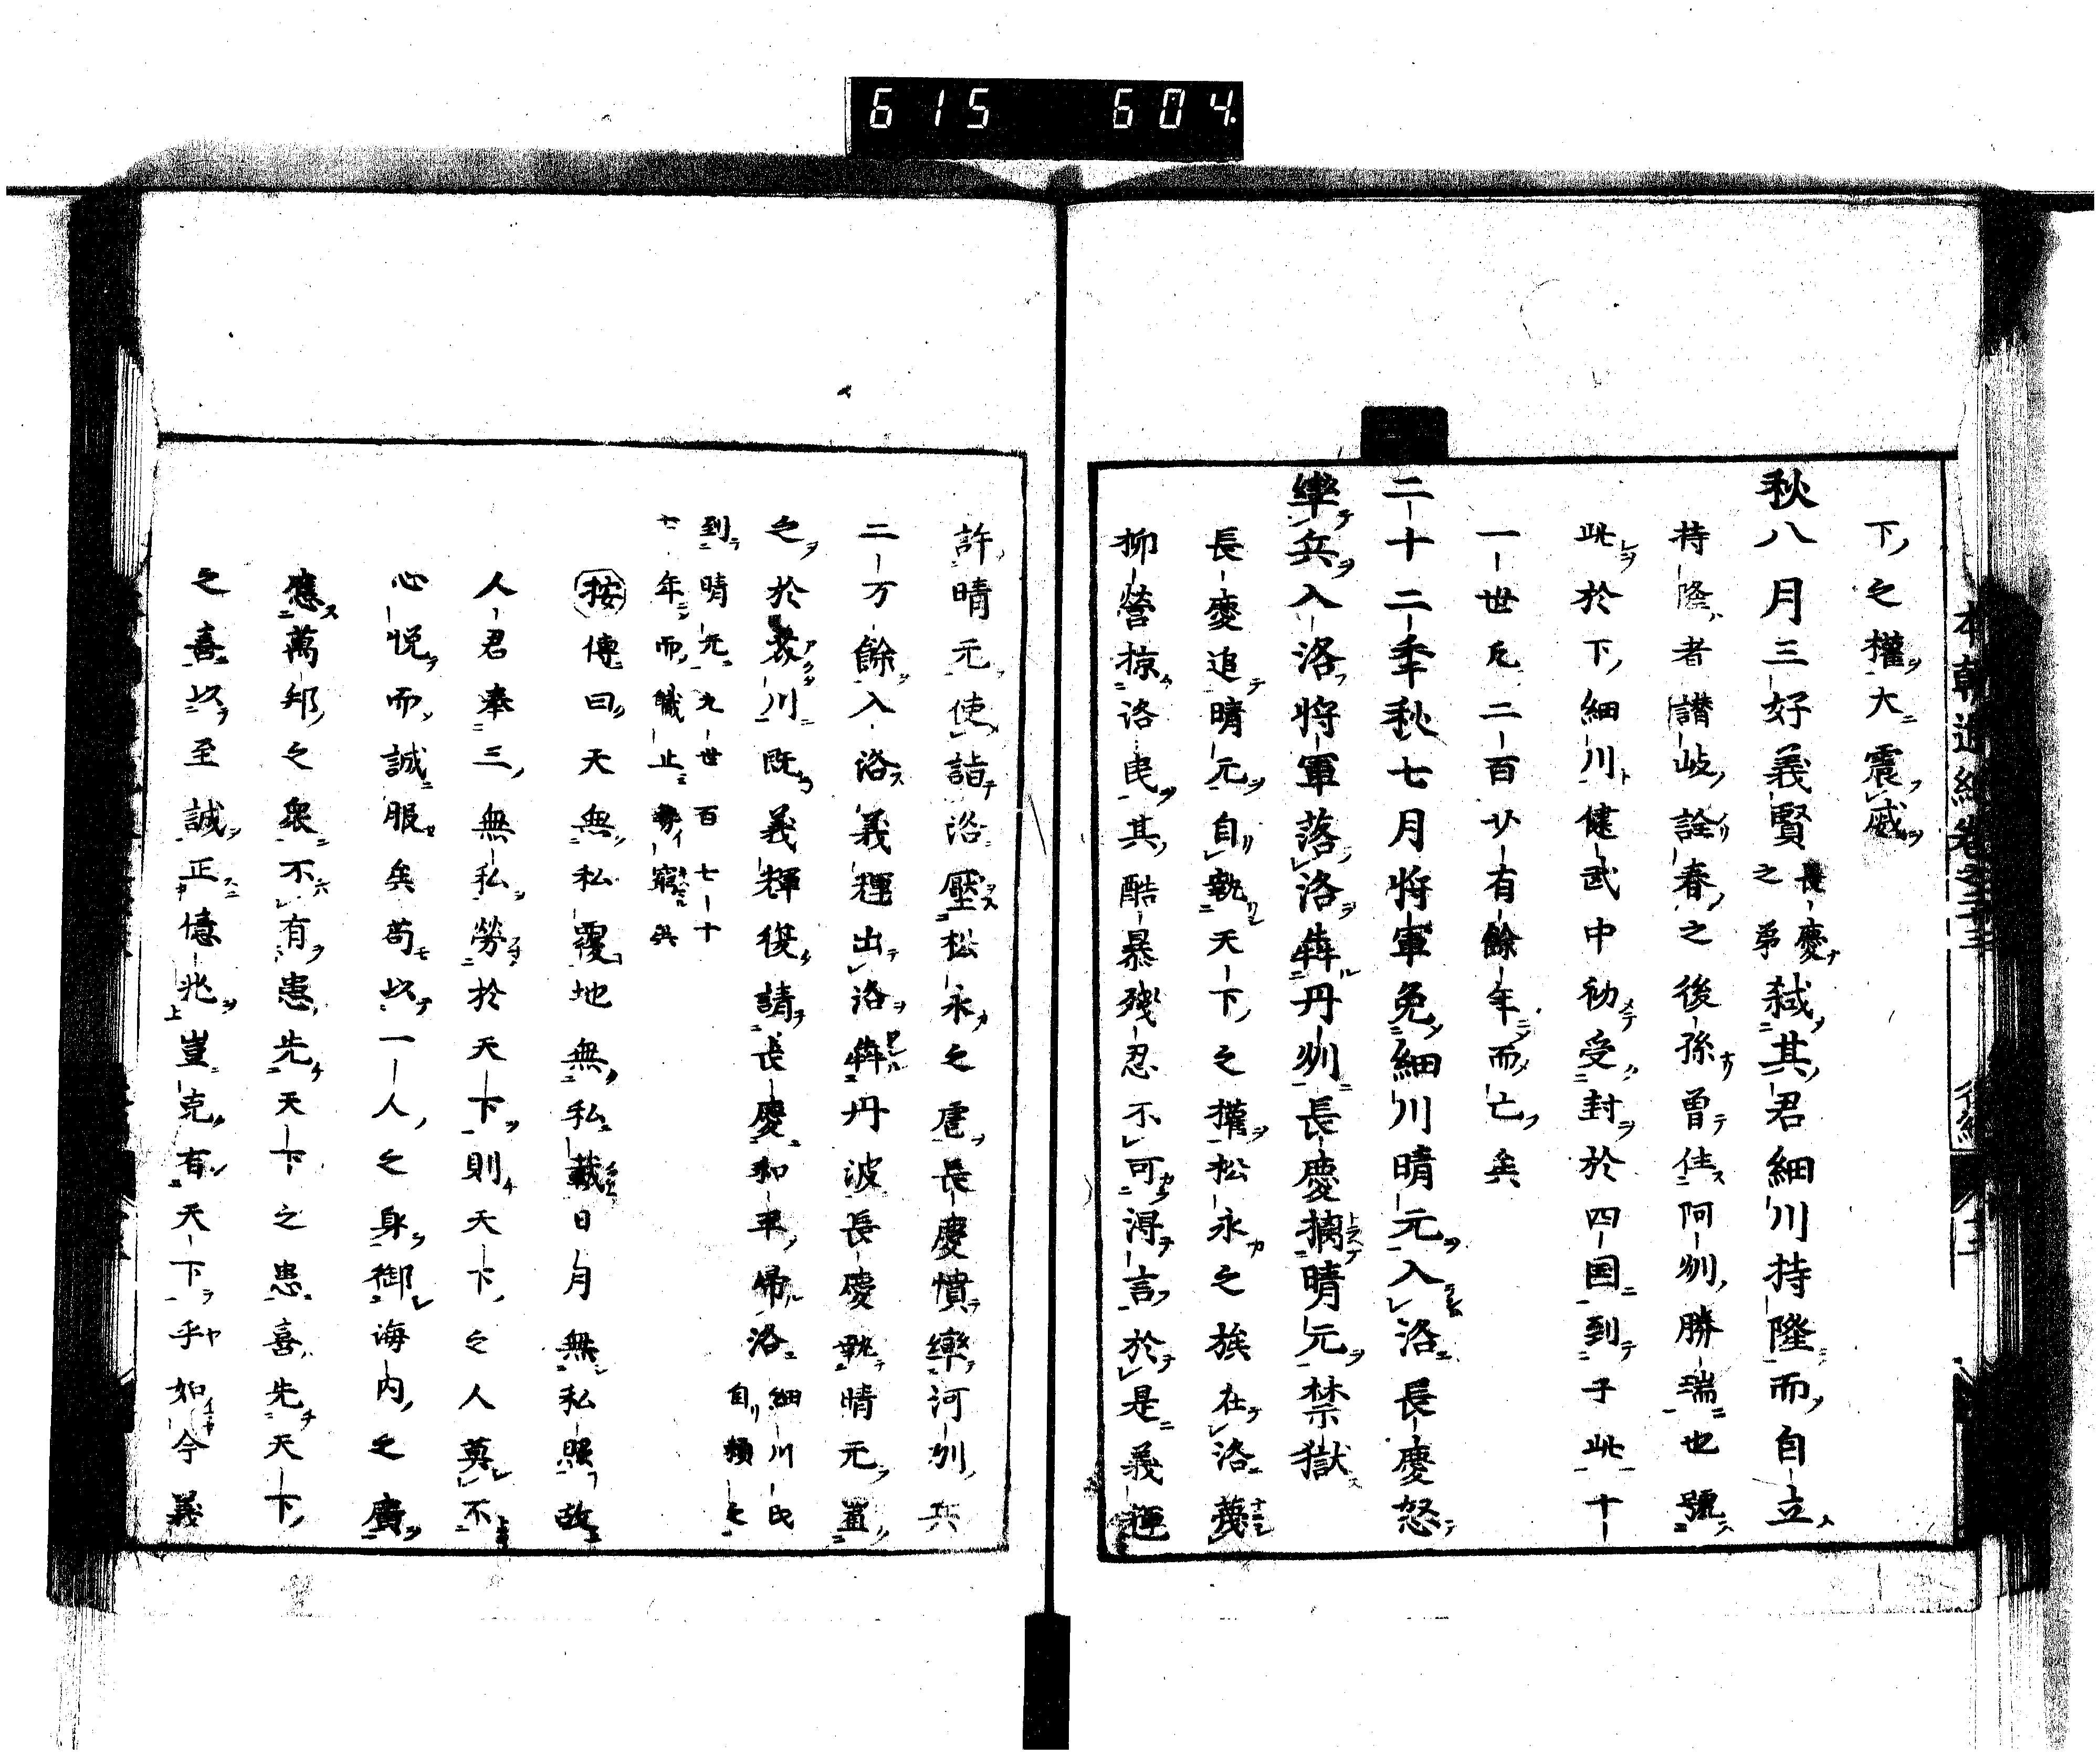 615 604
下之權大震威
秋八月三好義賢長慶之弟弑其君細川持隆而自立
持隆者讃岐詮春之後孫曾住阿刕勝瑞也號
此於下細川健武中初受封於四国到于此十
一世凡二百廿有餘年而亡矣
二十二年秋七月将軍免細川晴元入洛長慶怒
率兵入洛将軍落洛犇丹刕長慶擒晴元禁獄
長慶追晴元自執天下之權松永之族在洛蔑
柳營掠洛民其酷暴残忍不可得言於是義輝
許晴元使詣洛壓松永之虐長慶憤率河刕兵
二万餘入洛義輝出洛犇丹波長慶執晴元置
之於芥川既義輝復請長慶和平帰洛細川氏自頼之
到晴元九世百七十
七年而職止勢窮矣
按傳曰天無私覆地無私載日月無私照故
人君奉三無私勞於天下則天下之人莫不
心悦而誠服矣苟以一人之身御海内之廣
應萬邦之衆不有患先天下之患喜先天下
之喜以至誠正億兆豈克有天下乎如今義